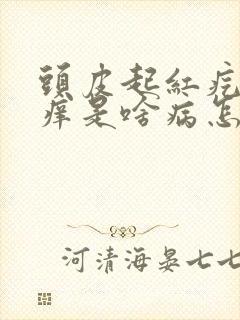 頭皮起紅疙
痒是啥病怎
河清海晏七七